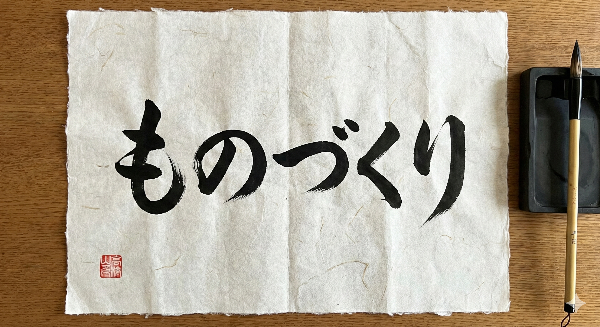 ものづくり